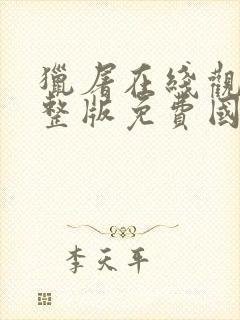 獵屠在綫觀
整版免費國
李天平